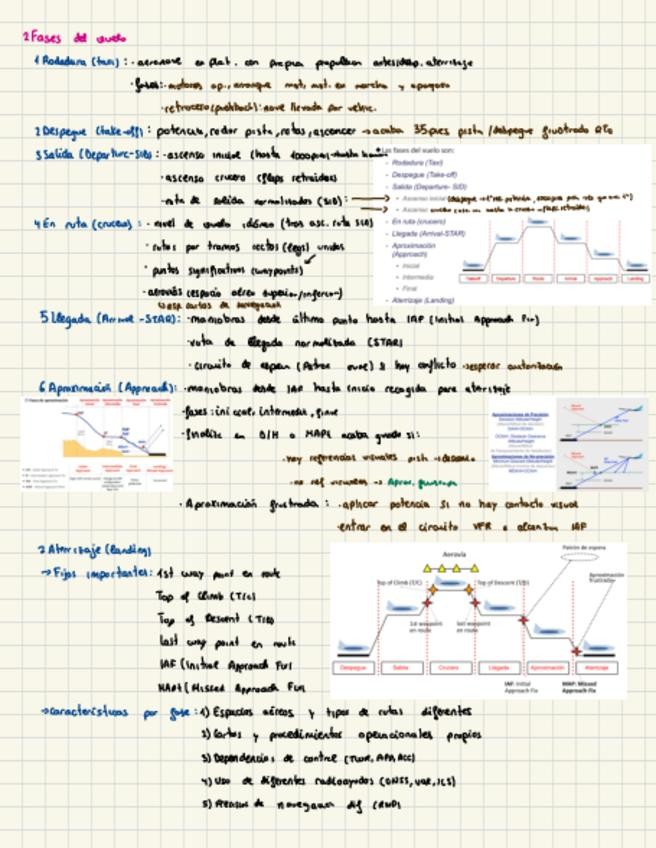 2 Fases del vuelo
1 Rodadura (taxi): · aeronave en plat. con propia propulsion antes/desp. aterrizaje
· fases: · motores op., arranque mot., mot. en marcha y apagado
· retroceso (pushback): nave llevada por vehic.
2 Despegue (take-off): potencia, rodar pista, rotar, ascender → acaba 35 pies pista / despegue frustrado RTO
3 Salida (Departure-SID): · ascenso inicial (hasta
· ascenso crucero (flaps retraidos)
· ruta de salida normalizada (SID):
Las fases del vuelo son:
- Rodadura (Taxi)
- Despegue (Take-off)
- Salida (Departure- SID)
- Ascenso inicial
- Ascenso
- En ruta (crucero)
- Llegada (Arrival-STAR)
- Aproximación (Approach)
• Inicial
• Intermedia
• Final
- Aterrizaje (Landing)
Takeoff Departure Route Arrival Approach Landing
4 En ruta (crucero): · nivel de vuelo idóneo (tras asc. ruta SID)
· rutas por tramos rectos (legs) unidos
· puntos significativos (waypoints)
· aerovías (espacio aéreo superior/inferior)
cartas de navegacion
5 Llegada (Arrival-STAR): · maniobras desde último punto hasta IAF (Initial Approach Fix)
· ruta de llegada normalizada (STAR)
· circuito de espera si hay conflicto → esperar autorización
6 Aproximación (Approach): · maniobras desde IAF hasta inicio recogida para aterrizaje
· fases: inicial, intermedia, final
· finaliza en D/H o MAPt acaba guiado si:
· hay referencias visuales pista →
· no ref visuales → Aprox. frustrada
· Aproximación frustrada: · aplicar potencia si no hay contacto visual
· entrar en el circuito VFR o alcanzar IAF
Aproximaciones de Precisión
Aproximaciones de No-precisión
2 Aterrizaje (landing)
→ Fijos importantes: 1st way point en route
Top of Climb (T/C)
Top of Descent (T/D)
Last way point en route
IAF (Initial Approach Fix)
MAPt (Missed Approach Fix)
Aerovía
Patrón de espera
Top of Climb (T/C)
Top of Descent (T/D)
Aproximación frustrada
1st waypoint en route
last waypoint en route
Despegue Salida Crucero Llegada Aproximación Aterrizaje
IAF: Initial Approach Fix
MAP: Missed Approach Fix
→ Características por fase: 1) Espacios aéreos y tipos de rutas diferentes
2) Cartas y procedimientos operacionales propios
3) Dependencias de control (TWR, APP, ACC)
4) Uso de diferentes radioayudas (GNSS, VOR, ILS)
5) de navegacion dif (RNP)